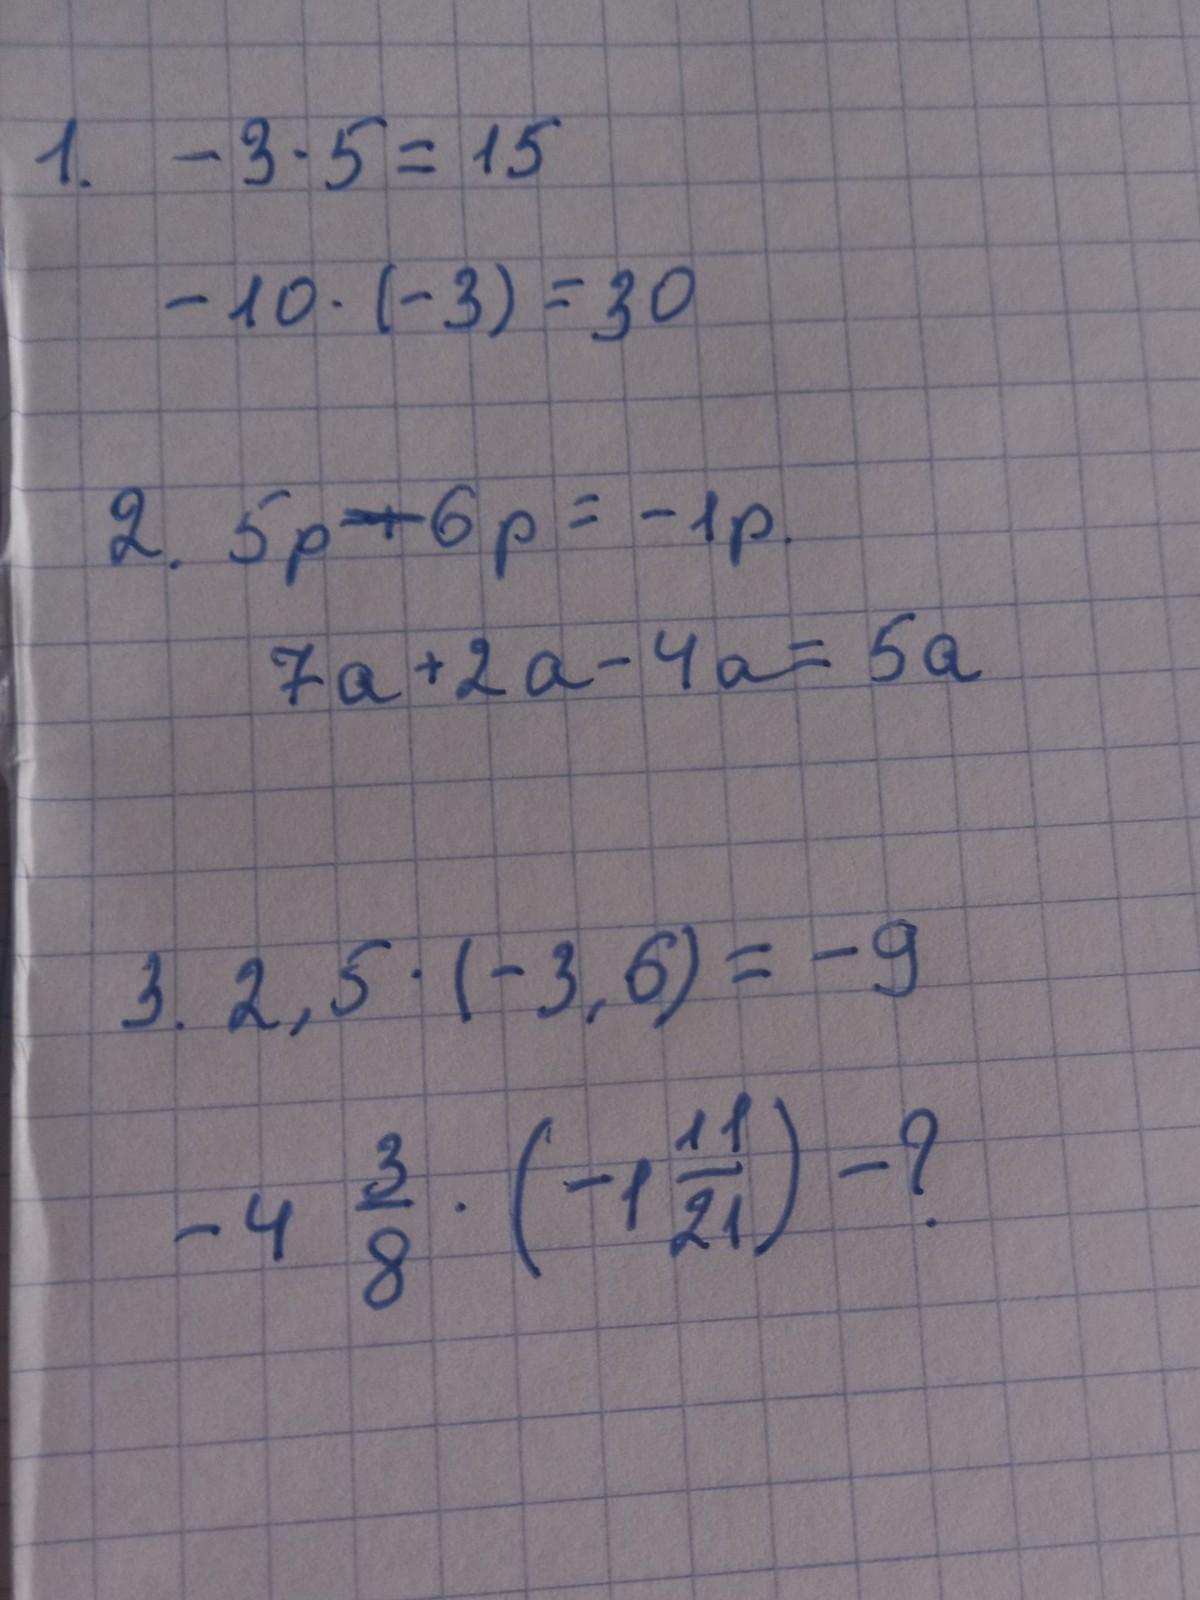 1. -3·5=15
-10·(-3)=30
2. 5p-6p=-1p.
7a+2a-4a=5a
3. 2,5·(-3,6)=-9
-4 3/8·(-1 11/21)-?